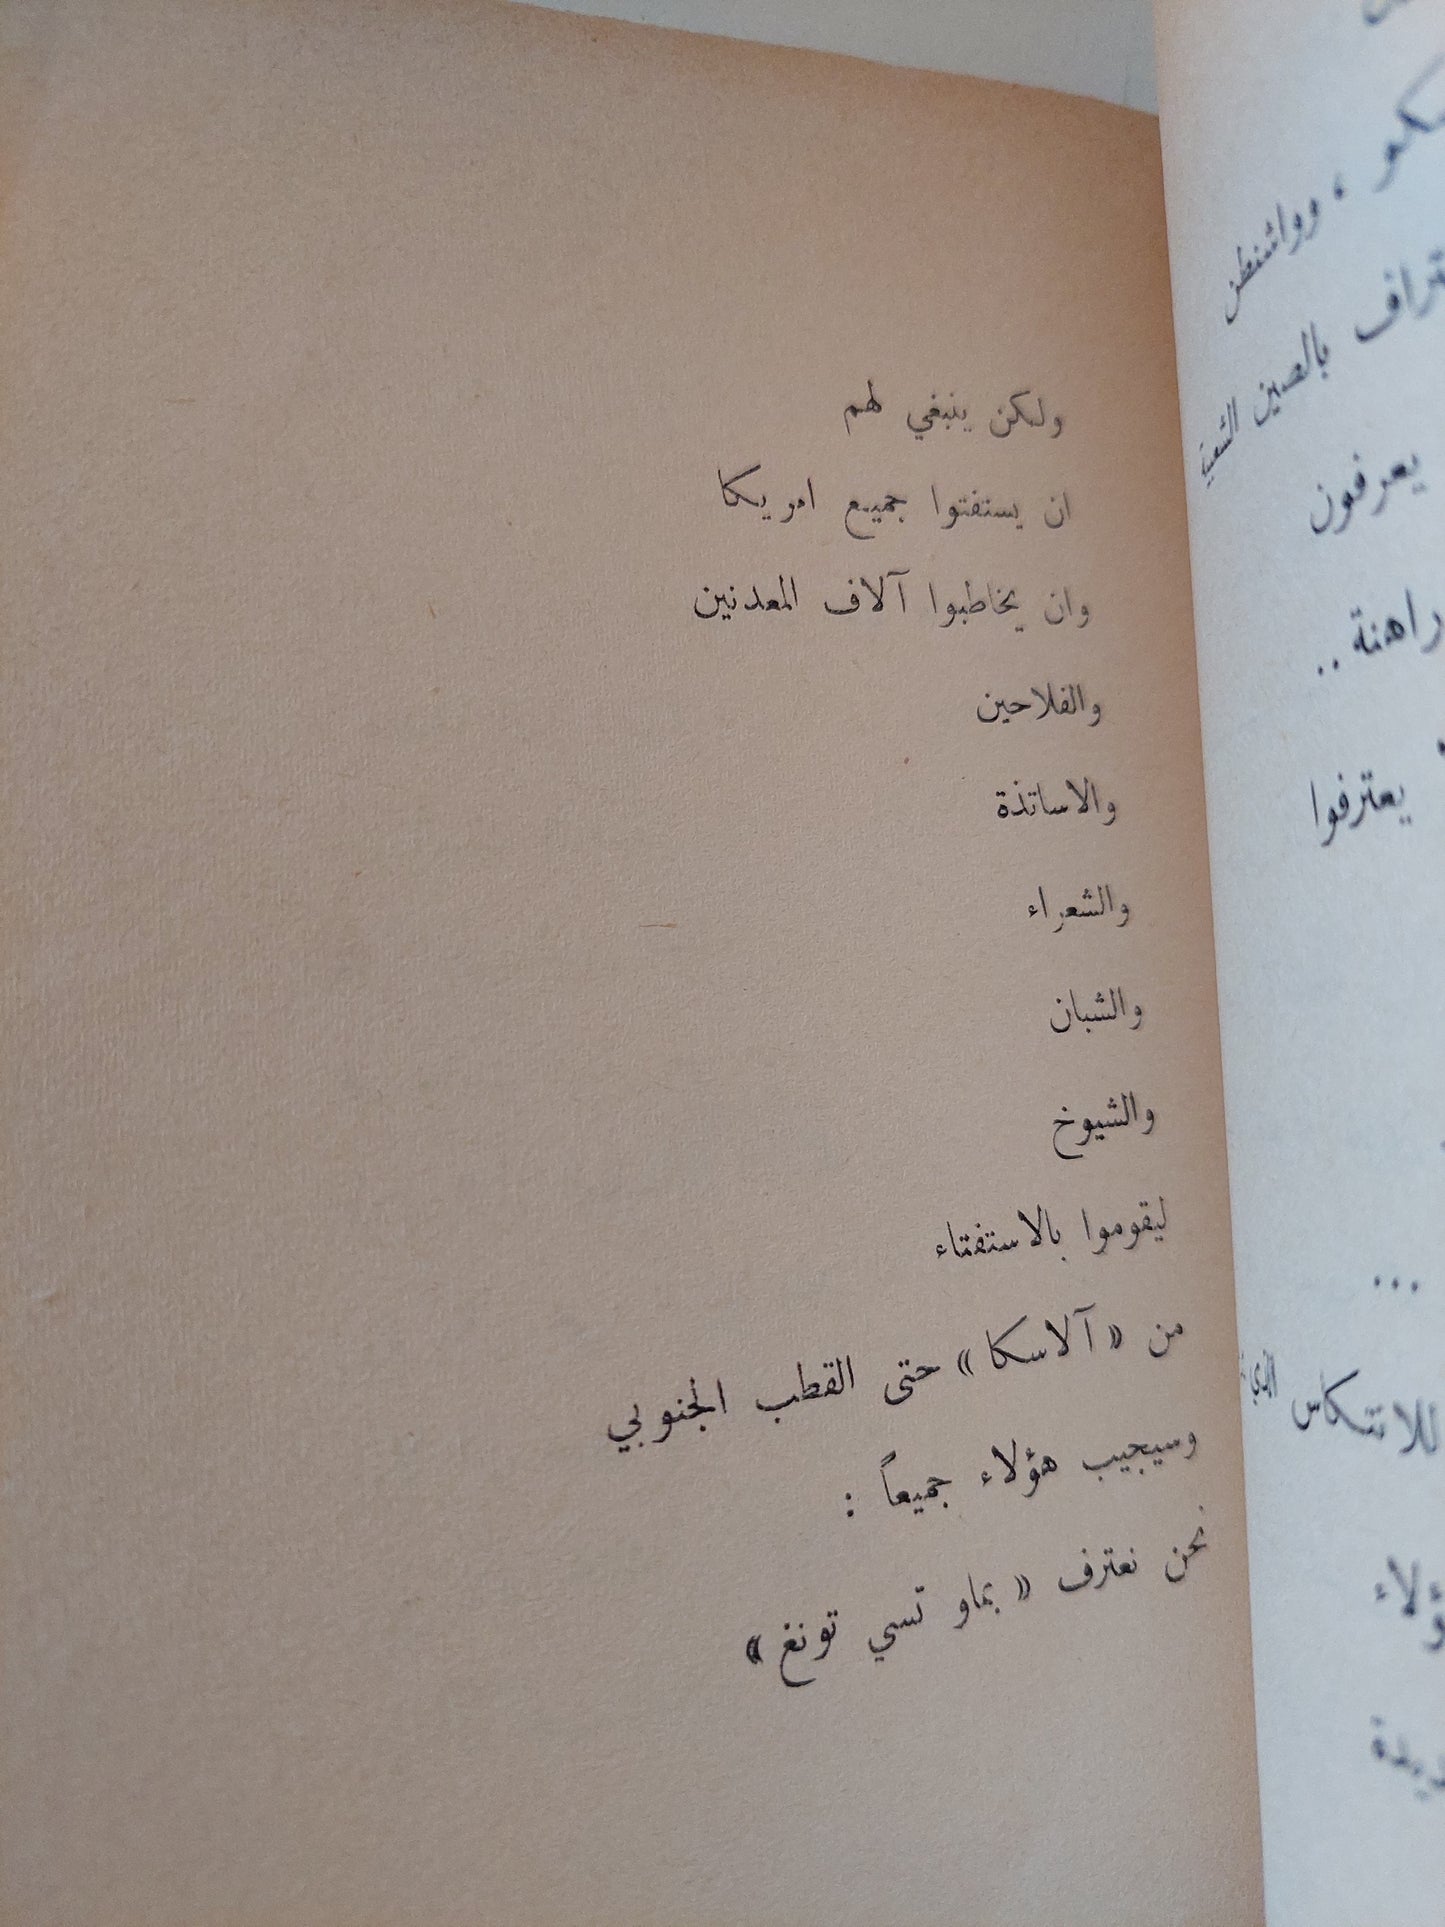 ، وواشنطن
بالصين الشعبية
يعرفون
راهنة ..
يعترفوا
...
ولكن ينبغي لهم
ان يستفتوا جميع امريكا
وان يخاطبوا آلاف المعدنين
والفلاحين
والاساتذة
والشعراء
والشبان
والشيوخ
ليقوموا بالاستفتاء
من « آلاسكا » حتى القطب الجنوبي
وسيجيب هؤلاء جميعاً :
نحن نعترف « بماو تسي تونغ »